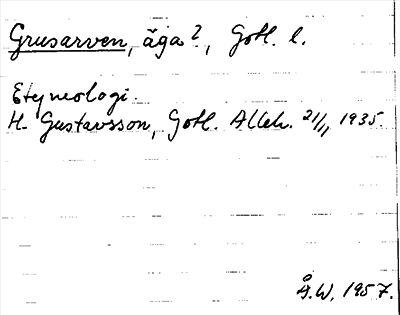 Grusarven, äga?, Gotl. l.
Etymologi.
H. Gustavsson, Gotl. Alleh. 21/1, 1935.
Å.W. 1957.